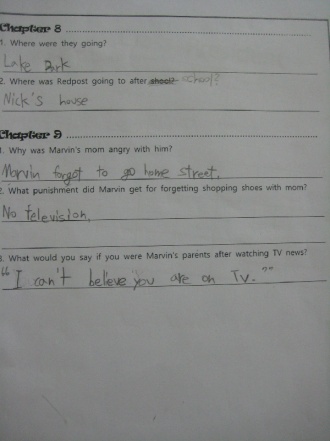 Chapter 8
1. Where were they going?
Lake Park
2. Where was Redpost going to after shool? school?
Nick's house
Chapter 9
1. Why was Marvin's mom angry with him?
Marvin forgot to go home street.
2. What punishment did Marvin get for forgetting shopping shoes with mom?
No television.
3. What would you say if you were Marvin's parents after watching TV news?
"I can't believe you are on Tv."